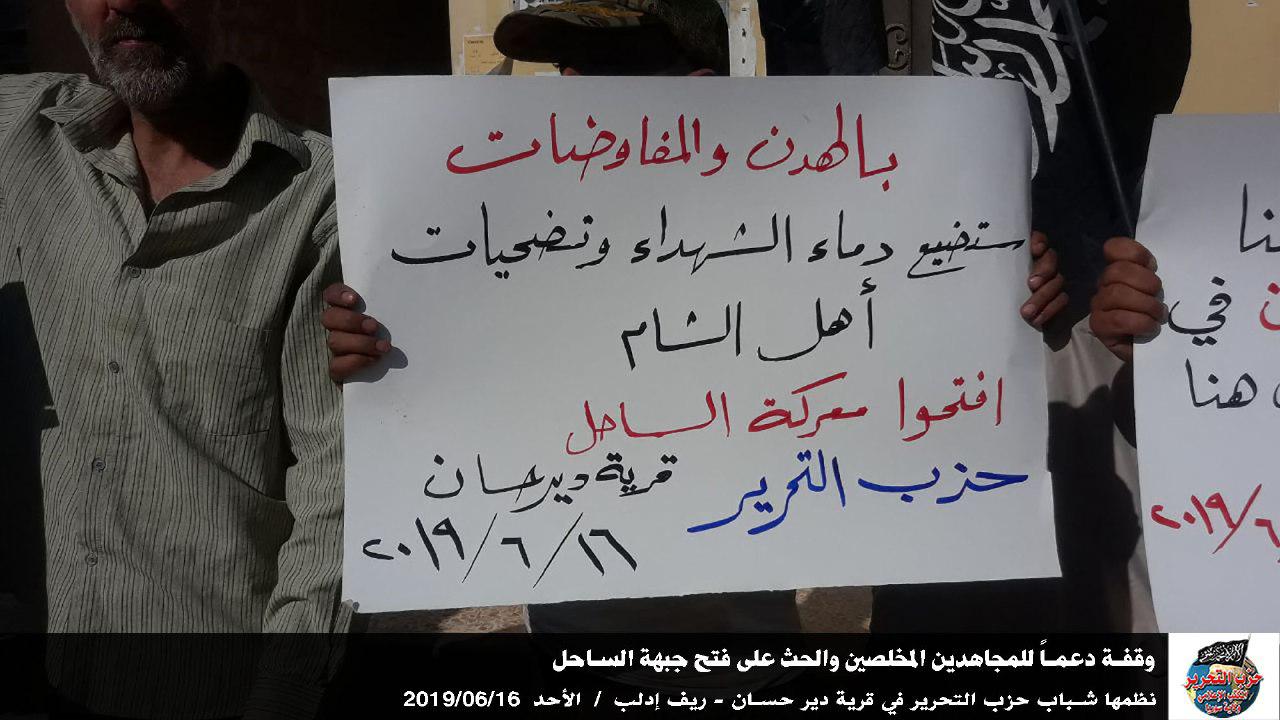 بالهدن والمفاوضات
ستضيع دماء الشهداء وتضحيات
أهل الشام
افتحوا معركة الساحل
حزب التحرير قرية ديرحسان
٢٠١٩/٦/١٦
نا
في
هنا
٢٠١٩/٦
وقفة دعماً للمجاهدين المخلصين والحث على فتح جبهة الساحل
نظمها شباب حزب التحرير في قرية دير حسان - ريف إدلب / الأحد 2019/06/16
حزب التحرير